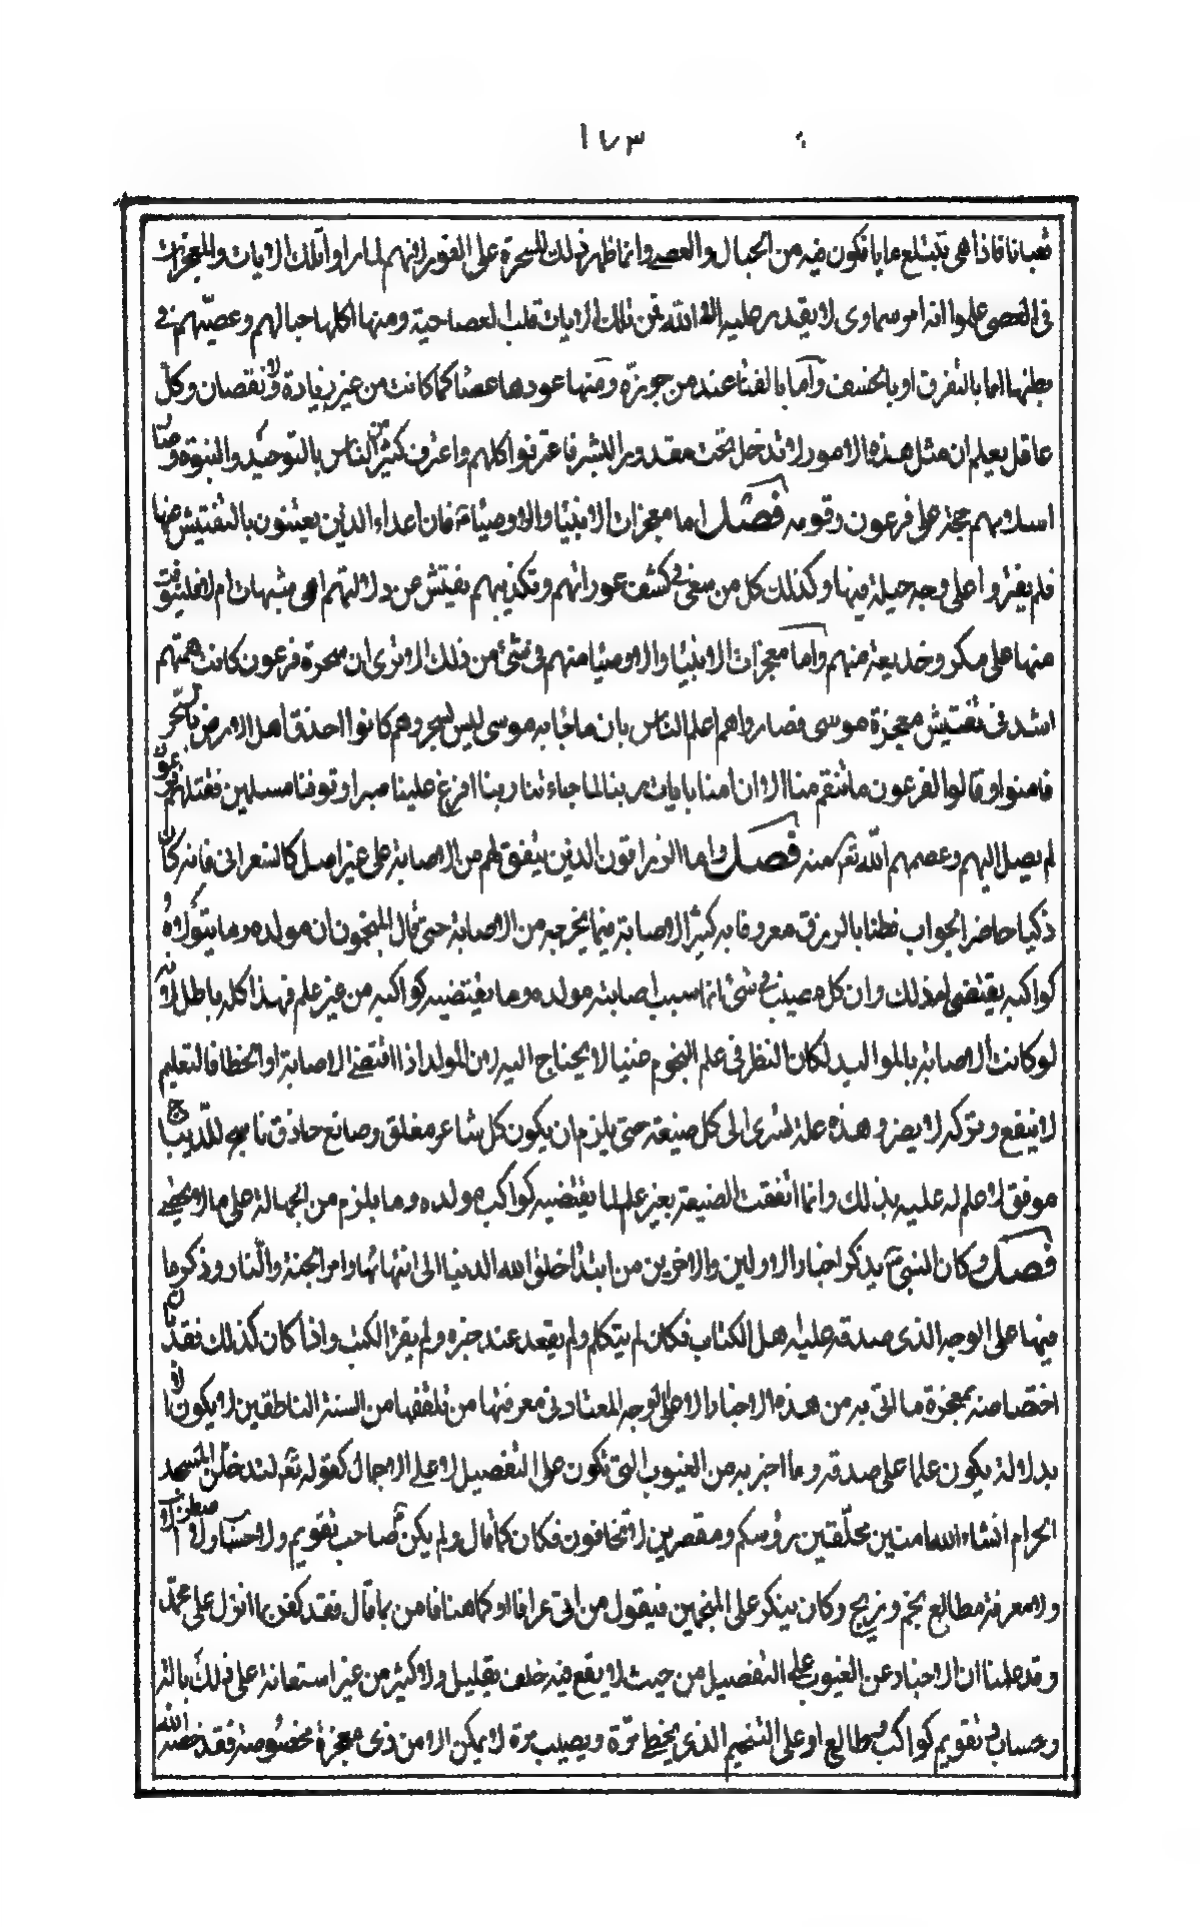 ١٧٣
ثعبانا فاذا هى تبتلع ما يأفكون فيه من الحبال والعصى وانما ظهر ذلك للسحرة على الفور لانهم لما راوا تلك الايات والمعجزات
فى العصى علموا انه امر سماوى لا يقدر عليه الا الله فمن تلك الايات قلب العصا حية ومنها اكلها حبالهم وعصيّهم فى
بطنها اما بالتفرق او بالخسف واما بالفنا عند من جوزه ومنها عودها عصا كما كانت من غير زيادة ولا نقصان وكل
عاقل يعلم ان مثل هذه الامور لا تدخل تحت مقدور البشر فاعترفوا كلهم واعترف كثير من الناس بالتوحيد والنبوة وصار
اسلامهم حجة على فرعون وقومه فصل اما معجزات الانبيا والاوصيا فان اعداء الدين يعتنون بالتفتيش عنها
فلم يعثروا على وجه حيلة فيها وكذلك كل من سعى فى كشف عوراتهم وتكذيبهم يفتش عن دلالتهم اهى شبهات ام لا فلم يوقف
منها على مكر وخديعة منهم واما معجزات الانبيا والاوصيا منهم فى شئ من ذلك الا ترى ان سحرة فرعون كانت همتهم
اشد فى تفتيش معجزة موسى فصاروا هم اعلم الناس بان ما جا به موسى ليس بسحر وهم كانوا احذق اهل الارض بالسحر
فامنوا وقالوا لفرعون ما تنقم منا الا ان امنا بايات ربنا لما جاءتنا ربنا افرغ علينا صبرا وتوفنا مسلمين فقتلهم فرعون
لم يصل اليهم وعصمهم الله تعالى منه فصل واما الزراقون الذين يتفق لهم من الاصابة على غير اصل كالشعرانى فانه كان
ذكيا حاضر الجواب فطنا بالزرق معروفا به كثير الاصابة فيما يخرجه من الاصابة حتى قال المنجمون ان مولده وما يتولاه
كواكبه يقتضى له ذلك وان كل مصيب فى شئ انما سبب اصابته مولده وما يقتضيه كواكبه من غير علم فهذا كله باطل لانه
لو كانت الاصابة بالمواليد لكان النظر فى علم النجوم عبثا لا يحتاج اليه لان المولد اذا اقتضى الاصابة او الخطا فالتعليم
لا ينفع وتركه لا يضر وهذه علة تسرى الى كل صنيعة حتى يلزم ان يكون كل شاعر مفلق وصانع حاذق ناسج للديباج
موفق لا علم له عليه بذلك وانما اتفقت الصنيعة بغير علم لما يقتضيه كواكب مولده وما يلزم من الجهالة على ما لا يحصى
فصل وكان النبى ص يذكر اخبار الاولين والاخرين من ابتدأ خلق الله الدنيا الى انتهائها وامر الجنة والنار وذكر ما
فيها على الوجه الذى صدقه عليه اهل الكتاب فكان لم يتكلم ولم يقعد عند حبر ولم يقرا الكتب واذا كان كذلك فقد بان
اختصاصه بمعجزة ما اتى به من هذه الاخبار لا على الوجه المعتاد فى معرفتها من تلقفها من السنة الناطقين لا يكون الا
بدلالة يكون علما على صدقه وما اخبر به من الغيوب التى تكون على التفصيل لا على الاجمال كقوله تعالى لتدخلن المسجد
الحرام انشاء الله امنين محلّقين رؤسكم ومقصرين لا تخافون فكان كما قال ولم يكن ص صاحب تقويم ولا حساب ولا
ولا معرفة مطالع نجم وزيج وكان ينكر على المنجمين فيقول من اتى عرافا او كاهنا فامن بما قال فقد كفر بما انزل على محمّد
وقد علمنا ان الاخبار عن الغيوب على التفصيل من حيث لا يقع فيه خلف بقليل ولا كثير من غير استعانة على ذلك بالة
وحساب فى تقويم كواكب وطالع او على التنجيم الذى يخطى مرّة ويصيب مرة لا يمكن الا من ذى معجزة مخصوصة قد خصه الله